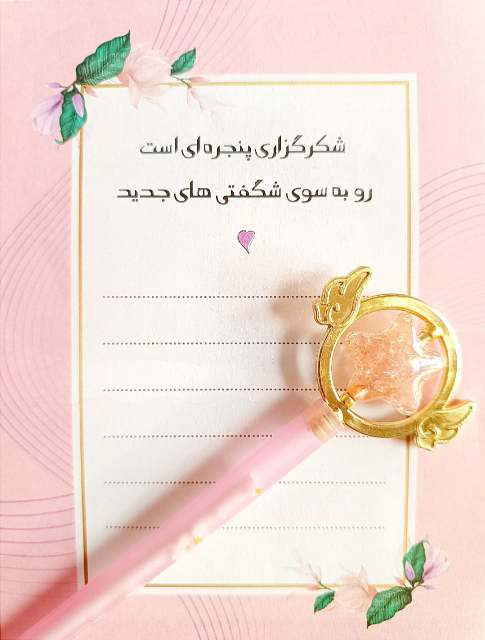 شکرگزاری پنجره ای است
رو به سوی شگفتی های جدید